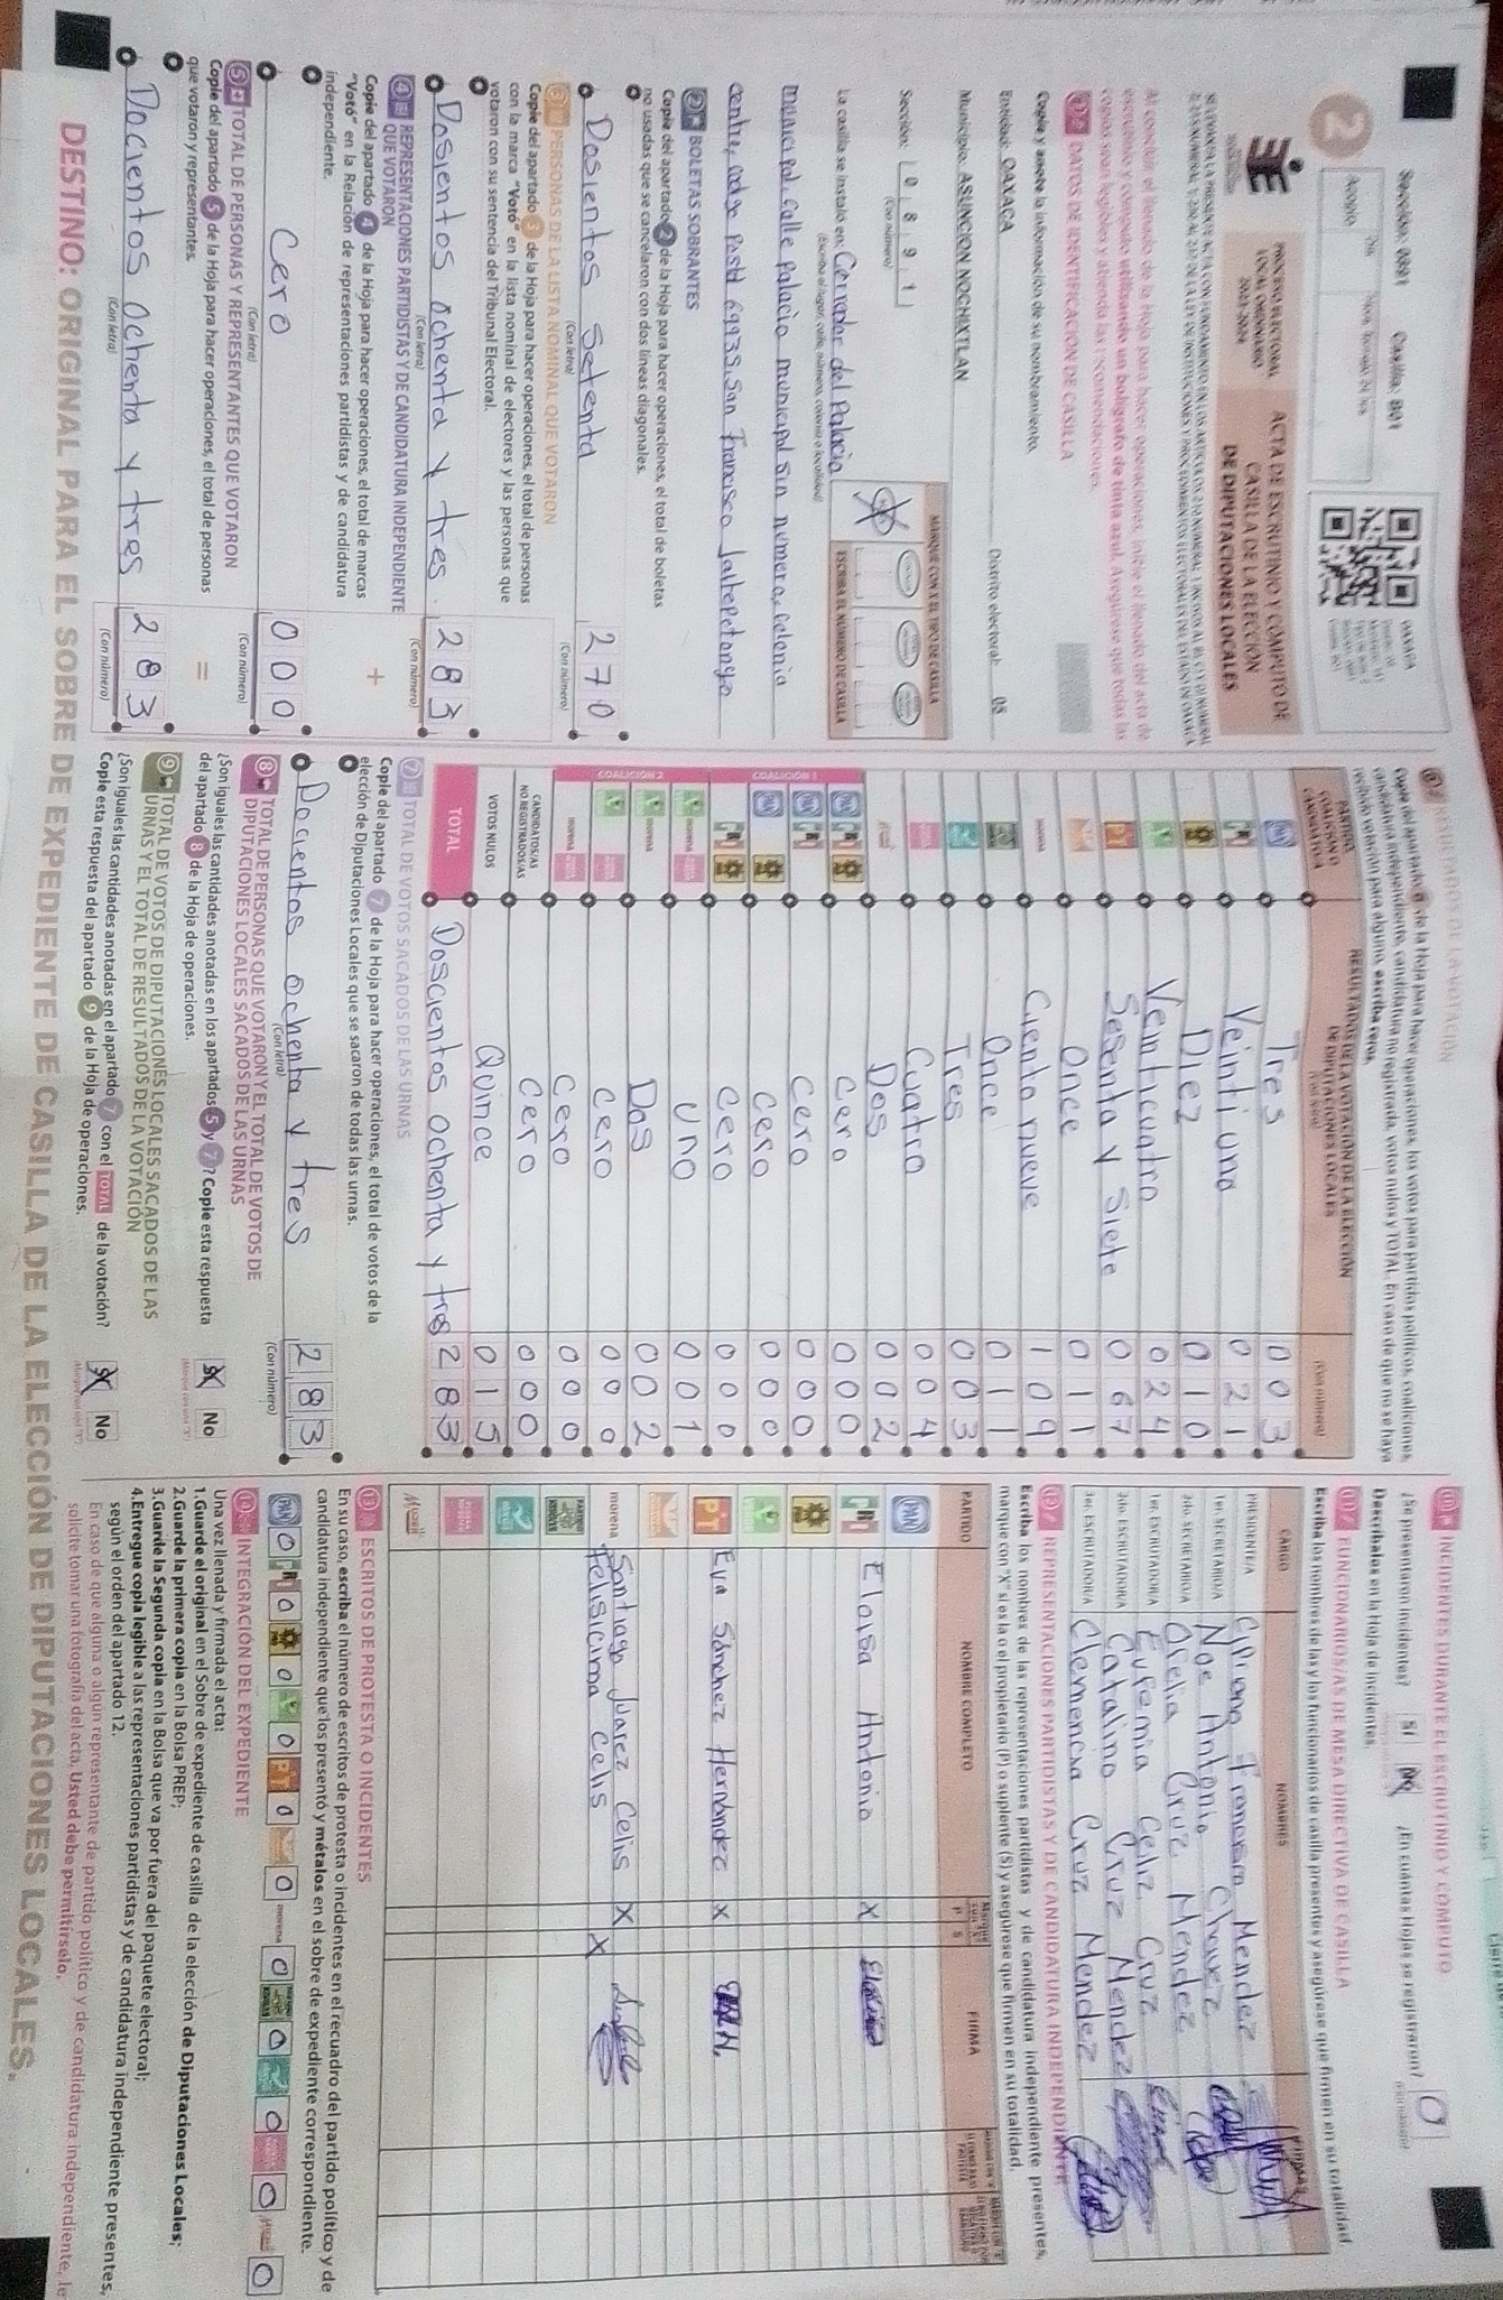 Sección: 0891 Casilla: B01
OAXACA
Acopio
2
PROCESO ELECTORAL
LOCAL ORDINARIO
2023-2024
ACTA DE ESCRUTINIO Y CÓMPUTO DE
CASILLA DE LA ELECCIÓN
DE DIPUTACIONES LOCALES
Al concluir el llenado de la Hoja para hacer operaciones, inicie el llenado del acta de
escrutinio y cómputo utilizando un bolígrafo de tinta azul. Asegúrese que todas las
copias sean legibles y atienda las recomendaciones.
1 DATOS DE IDENTIFICACIÓN DE CASILLA
Copie y anote la información de su nombramiento.
Entidad: OAXACA Distrito electoral: 05
Municipio: ASUNCION NOCHIXTLAN
Sección: 0 8 9 1
(Con número)
MARQUE CON X EL TIPO DE CASILLA
ESCRIBA EL NÚMERO DE CASILLA
La casilla se instaló en: Corredor del Palacio
(Escriba el lugar, calle, número, colonia o localidad)
municipal, calle palacio municipal sin numero, colonia
centro, codgo postal 69935, San Francisco Jaltepetongo
2 BOLETAS SOBRANTES
Copie del apartado 2 de la Hoja para hacer operaciones, el total de boletas
no usadas que se cancelaron con dos líneas diagonales.
Dosientos setenta 2 7 0
(Con letra) (Con número)
3 PERSONAS DE LA LISTA NOMINAL QUE VOTARON
Copie del apartado 3 de la Hoja para hacer operaciones, el total de personas
con la marca "Votó" en la lista nominal de electores y las personas que
votaron con su sentencia del Tribunal Electoral.
Dosientos ochenta y tres. 2 8 3
(Con letra) (Con número)
4 REPRESENTACIONES PARTIDISTAS Y DE CANDIDATURA INDEPENDIENTE
QUE VOTARON
+
Copie del apartado 4 de la Hoja para hacer operaciones, el total de marcas
"Votó" en la Relación de representaciones partidistas y de candidatura
independiente.
Cero 0 0 0
(Con letra) (Con número)
5 TOTAL DE PERSONAS Y REPRESENTANTES QUE VOTARON
=
Copie del apartado 5 de la Hoja para hacer operaciones, el total de personas
que votaron y representantes.
Docientos ochenta y tres 2 8 3
(Con letra) (Con número)
6 RESULTADOS DE LA VOTACIÓN
Copie del apartado 6 de la Hoja para hacer operaciones, los votos para partidos políticos, coaliciones,
candidatura independiente, candidatura no registrada, votos nulos y TOTAL. En caso de que no se haya
recibido votación para alguno, escriba ceros.
PARTIDO,
COALICIÓN O
CANDIDATO/A
RESULTADOS DE LA VOTACIÓN DE LA ELECCIÓN
DE DIPUTACIONES LOCALES
(Con letra) (Con número)
PAN Tres 0 0 3
PRI Veinti uno 0 2 1
PRD Diez 0 1 0
Veinticuatro 0 2 4
PT Sesenta y Siete 0 6 7
Once 0 1 1
morena Ciento nueve 1 0 9
Once 0 1 1
Tres 0 0 3
Cuatro 0 0 4
Dos 0 0 2
COALICIÓN 1
PAN PRI PRD cero 0 0 0
PAN PRI cero 0 0 0
PAN PRD cero 0 0 0
PRI PRD cero 0 0 0
COALICIÓN 2
morena uno 0 0 1
morena Dos 0 0 2
cero 0 0 0
morena cero 0 0 0
CANDIDATOS/AS
NO REGISTRADOS/AS cero 0 0 0
VOTOS NULOS Quince 0 1 5
TOTAL Doscientos ochenta y tres 2 8 3
7 TOTAL DE VOTOS SACADOS DE LAS URNAS
Copie del apartado 7 de la Hoja para hacer operaciones, el total de votos de la
elección de Diputaciones Locales que se sacaron de todas las urnas.
Docientos ochenta y tres 2 8 3
(Con letra) (Con número)
8 TOTAL DE PERSONAS QUE VOTARON Y EL TOTAL DE VOTOS DE
DIPUTACIONES LOCALES SACADOS DE LAS URNAS
¿Son iguales las cantidades anotadas en los apartados 5 y 7? Copie esta respuesta
del apartado 8 de la Hoja de operaciones.
Sí No
9 TOTAL DE VOTOS DE DIPUTACIONES LOCALES SACADOS DE LAS
URNAS Y EL TOTAL DE RESULTADOS DE LA VOTACIÓN
¿Son iguales las cantidades anotadas en el apartado 7 con el TOTAL de la votación?
Copie esta respuesta del apartado 9 de la Hoja de operaciones.
Sí No
10 INCIDENTES DURANTE EL ESCRUTINIO Y CÓMPUTO
¿Se presentaron incidentes? Sí No ¿En cuántas Hojas se registraron? 0
Descríbalos en la Hoja de incidentes.
11 FUNCIONARIOS/AS DE MESA DIRECTIVA DE CASILLA
Escriba los nombres de las y los funcionarios de casilla presentes y asegúrese que firmen en su totalidad
CARGO NOMBRES FIRMAS
PRESIDENTE/A Cipriano Francisco Mendez
1er. SECRETARIO/A Noe Antonio Chavez
2do. SECRETARIO/A Ofelia Cruz Mendez
1er. ESCRUTADOR/A Eufemia Celiz Cruz
2do. ESCRUTADOR/A Catalino Cruz Mendez
3er. ESCRUTADOR/A Clemencia Cruz Mendez
12 REPRESENTACIONES PARTIDISTAS Y DE CANDIDATURA INDEPENDIENTE
Escriba los nombres de las representaciones partidistas y de candidatura independiente presentes,
marque con "X" si es la o el propietario (P) o suplente (S) y asegúrese que firmen en su totalidad.
PARTIDO NOMBRE COMPLETO P S FIRMA
PAN
PRI Eloisa Antonio X
PRD
PT Eva Sánchez Hernández X
morena Santiago Juarez Celis X
Felisicima Celis X
13 ESCRITOS DE PROTESTA O INCIDENTES
En su caso, escriba el número de escritos de protesta o incidentes en el recuadro del partido político y de
candidatura independiente que los presentó y métalos en el sobre de expediente correspondiente.
PAN 0 PRI 0 PRD 0 0 PT 0 0 morena 0 0 0 0 0
14 INTEGRACIÓN DEL EXPEDIENTE
Una vez llenada y firmada el acta:
1.Guarde el original en el Sobre de expediente de casilla de la elección de Diputaciones Locales;
2.Guarde la primera copia en la Bolsa PREP;
3.Guarde la Segunda copia en la Bolsa que va por fuera del paquete electoral;
4.Entregue copia legible a las representaciones partidistas y de candidatura independiente presentes,
según el orden del apartado 12.
En caso de que alguna o algún representante de partido político y de candidatura independiente, le
solicite tomar una fotografía del acta, Usted debe permitírselo.
DESTINO: ORIGINAL PARA EL SOBRE DE EXPEDIENTE DE CASILLA DE LA ELECCIÓN DE DIPUTACIONES LOCALES.